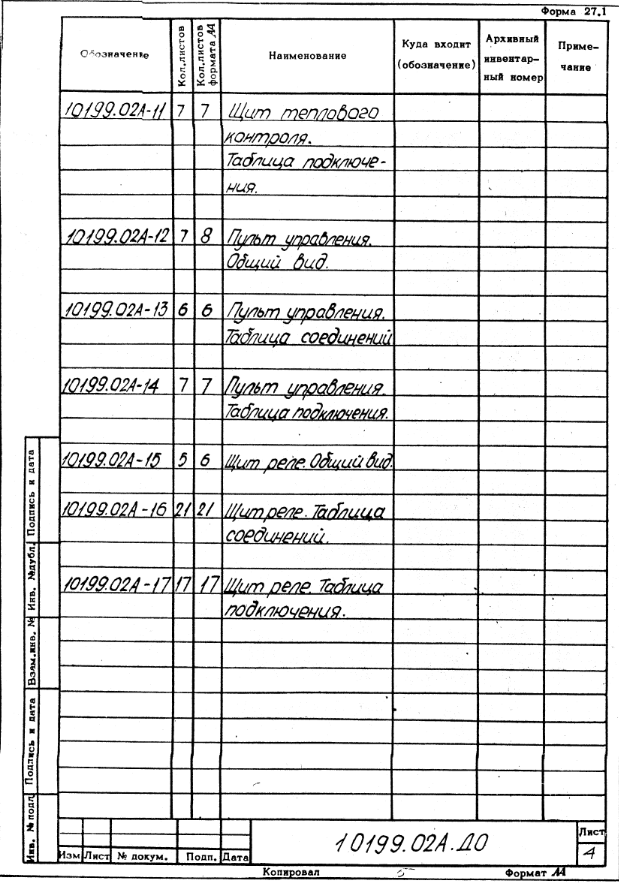 Форма 27.1
Обозначение
Кол.листов
Кол.листов формата А4
Наименование
Куда входит (обозначение)
Архивный инвентар-ный номер
Приме-чание
10199.02А-11 7 7 Щит теплового
контроля.
Таблица подключе-
ния.
10199.02А-12 7 8 Пульт управления.
Общий вид.
10199.02А-13 6 6 Пульт управления.
Таблица соединений
10199.02А-14 7 7 Пульт управления.
Таблица подключения.
10199.02А-15 5 6 Щит реле. Общий вид.
10199.02А-16 21 21 Щит реле. Таблица
соединений.
10199.02А-17 17 17 Щит реле. Таблица
подключения.
Инв. № подл.
Подпись и дата
Взам.инв. №
Инв. №дубл.
Подпись и дата
Изм Лист № докум. Подп. Дата
10199.02А.ДО
Лист
4
Копировал
Формат А4